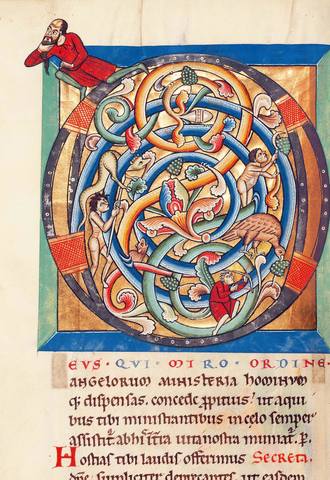 EVS · QVI · MIRO · ORDINE ·
angelorum ministeria hominum
q; dispensas. concede ꝓpitius. ut a qui
bus tibi ministrantibus in celo semper
assistit͛. ab hi
Hostias tibi laudis offerimus Secreta.
suppliciter deprecantes. ut easdem